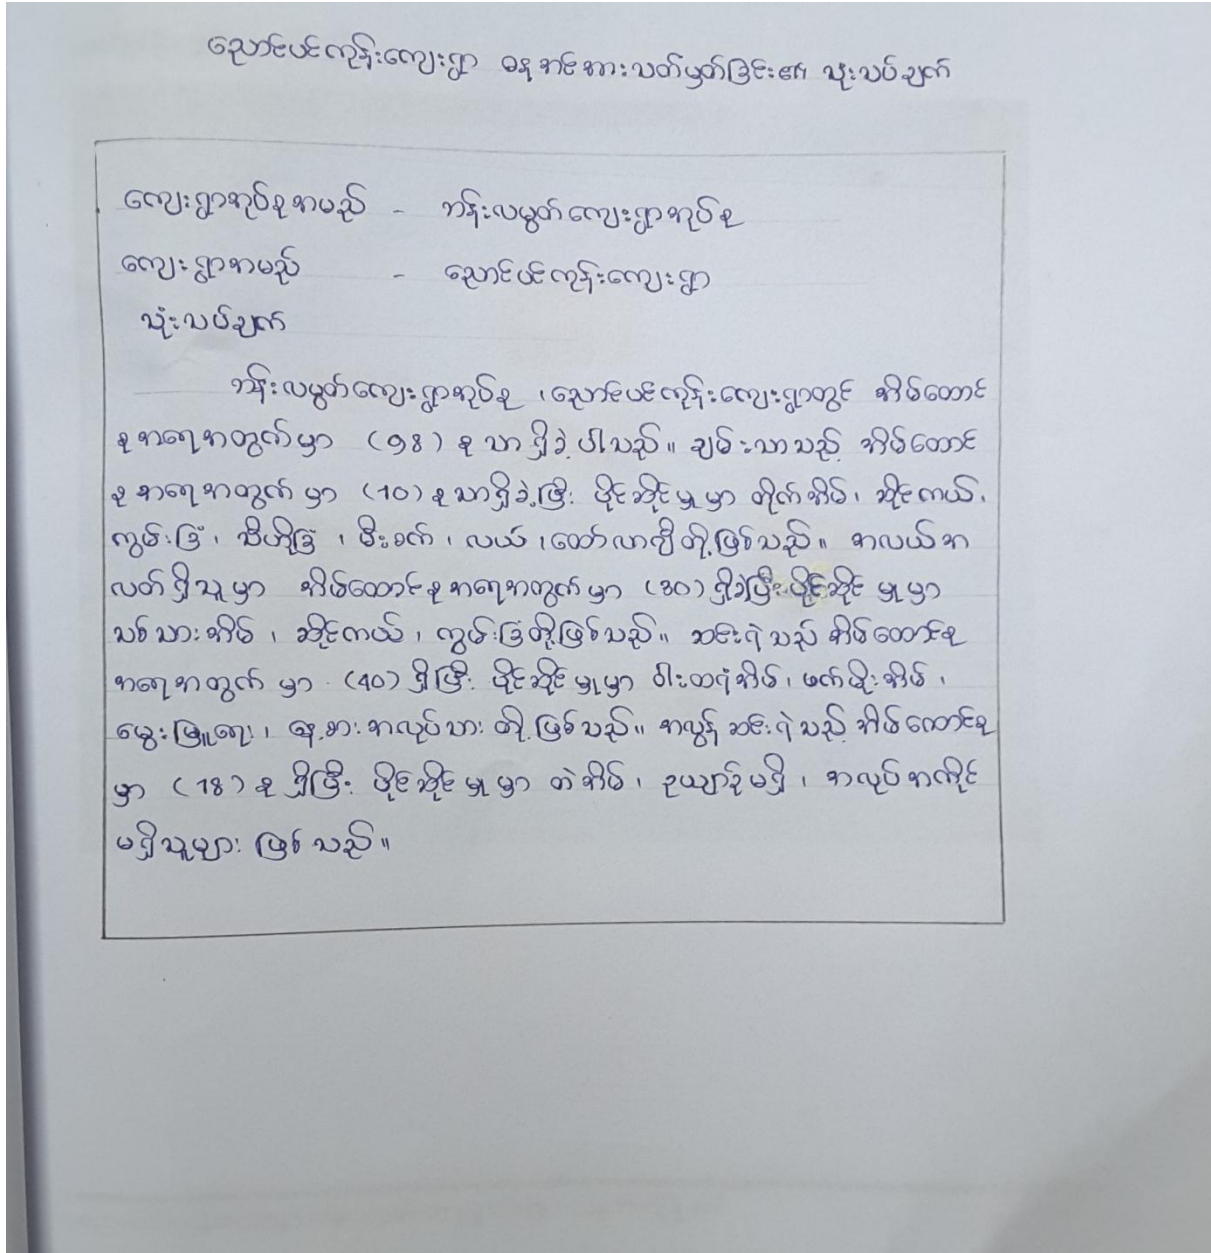 ညောင်ပင်ကုန်းကျေးရွာ ဓနအင်အားသတ်မှတ်ခြင်း၏ သုံးသပ်ချက်
ကျေးရွာအုပ်စုအမည် - ဘန်းလမွတ်ကျေးရွာအုပ်စု
ကျေးရွာအမည် - ညောင်ပင်ကုန်းကျေးရွာ
သုံးသပ်ချက်
ဘန်းလမွတ်ကျေးရွာအုပ်စု ၊ ညောင်ပင်ကုန်းကျေးရွာတွင် အိမ်ထောင်
စုအရေအတွက်မှာ (98) စုသာ ရှိခဲ့ပါသည်။ ချမ်းသာသည့် အိမ်ထောင်
စုအရေအတွက်မှာ (10) စုသာရှိခဲ့ပြီး ပိုင်ဆိုင်မှုမှာ တိုက်အိမ်၊ ဆိုင်ကယ်၊
ကွမ်းခြံ၊ သီဟိုခြံ ၊ မီးစက် ၊ လယ် ၊ ထော်လာဂျီတို့ဖြစ်သည်။ အလယ်အ
လတ်ရှိသူမှာ အိမ်ထောင်စုအရေအတွက်မှာ (30) ရှိခဲ့ပြီး ပိုင်ဆိုင်မှုမှာ
သစ်သားအိမ် ၊ ဆိုင်ကယ် ၊ ကွမ်းခြံတို့ဖြစ်သည်။ ဆင်းရဲသည့် အိမ်ထောင်စု
အရေအတွက်မှာ (40) ရှိပြီး ပိုင်ဆိုင်မှုမှာ ဝါးထရံအိမ်၊ ဖက်မိုးအိမ် ၊
မွေးမြူရေး၊ နေ့စားအလုပ်သားတို့ဖြစ်သည်။ အလွန်ဆင်းရဲသည့် အိမ်ထောင်စု
မှာ (18) စု ရှိပြီး ပိုင်ဆိုင်မှုမှာ တဲအိမ် ၊ ဥယျာဉ်မရှိ ၊ အလုပ်အကိုင်
မရှိသူများ ဖြစ်သည်။